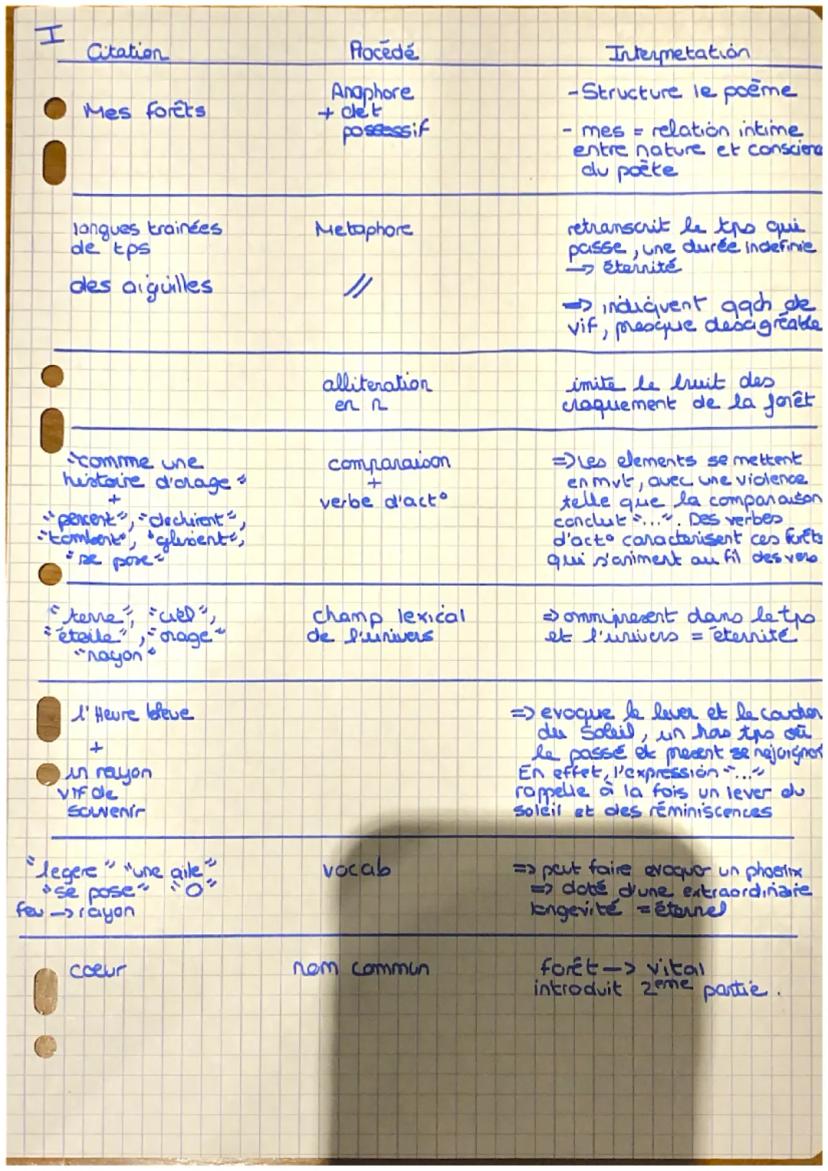 I
Citation Procédé Interpretation
Mes forêts
Anaphore
+ det
possessif
-Structure le poème
- mes = relation intime
entre nature et conscienc
du poète
longues trainées
de tps
Metaphore
retranscrit le tps qui
passe, une durée indefinie
-> éternité
des aiguilles
//
=> indiquent qqch de
vif, presque desagréable
alliteration
en r
imite le bruit des
craquement de la forêt
"comme une
histoire d'orage"
+
"percent", "dechirent",
"tombent", "glissent",
"se pose"
comparaison
+
verbe d'act°
=> Les elements se mettent
en mvt, avec une violence
telle que la comparaison
conclut "...". Des verbes
d'act° caracterisent ces forêts
qui s'animent au fil des vers
"terre", "ciel",
"étoile", "orage"
"rayon"
champ lexical
de l'univers
=> omnipresent dans le tps
et l'univers = éternité
l'Heure bleue
+
un rayon
vif de
souvenir
=> evoque le lever et le coucher
du Soleil, un hors tps où
le passé et present se rejoignent
En effet, l'expression "..."
rappelle à la fois un lever du
soleil et des réminiscences
"legere" "une aile"
"se pose" "O"
feu -> rayon
vocab
=> peut faire evoquer un phoenix
=> doté d'une extraordinaire
longevité = éternel
coeur
nom commun
forêt -> vital
introduit 2eme partie.